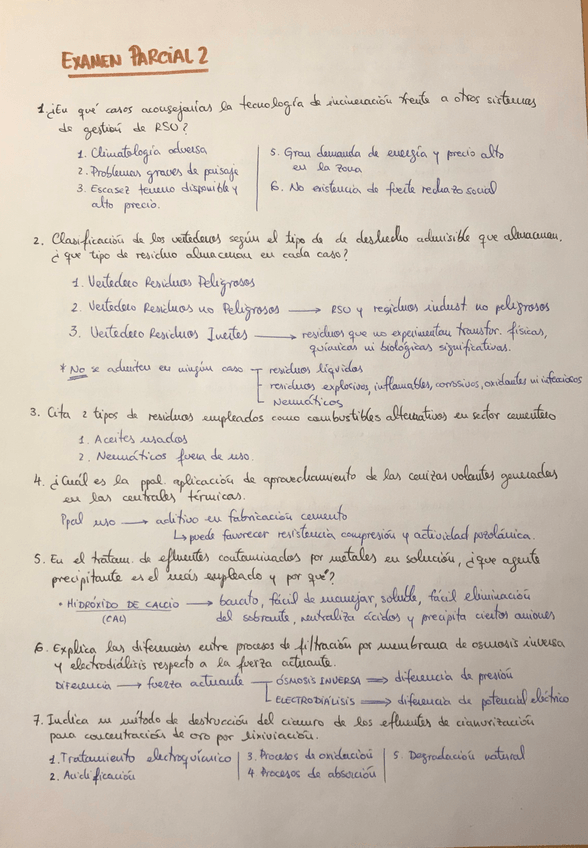 EXAMEN PARCIAL 2
1. ¿En qué casos aconsejarías la tecnología de incineración frente a otros sistemas
de gestión de RSU?
1. Climatología adversa
2. Problemas graves de paisaje
3. Escasez terreno disponible y
alto precio.
5. Gran demanda de energía y precio alto
en la zona
6. No existencia de fuerte rechazo social
2. Clasificación de los vertederos según el tipo de de deshecho admisible que almacenan.
¿que tipo de residuo almacenan en cada caso?
1. Vertedero Residuos Peligrosos
2. Vertedero Residuos no Peligrosos → RSU y residuos indust. no peligrosos
3. Vertedero Residuos Inertes → residuos que no experimentan transfor. físicas,
químicas ni biológicas significativas.
* No se admiten en ningún caso residuos líquidos
residuos explosivos, inflamables, corrosivos, oxidantes ni infecciosos
Neumáticos
3. Cita 2 tipos de residuos empleados como combustibles alternativos en sector cementero
1. Aceites usados
2. Neumáticos fuera de uso.
4. ¿Cuál es la ppal. aplicación de aprovechamiento de las cenizas volantes generadas
en las centrales térmicas.
Ppal uso → aditivo en fabricación cemento
↳ puede favorecer resistencia compresión y actividad pozolánica.
5. En el tratam. de efluentes contaminados por metales en solución, ¿que agente
precipitante es el más empleado y por qué?
• HIDRÓXIDO DE CALCIO → barato, fácil de manejar, soluble, fácil eliminación
(CAL) del sobrante, neutraliza ácidos y precipita ciertos aniones
6. Explica las diferencias entre procesos de filtración por membrana de osmosis inversa
y electrodiálisis respecto a la fuerza actuante.
DIFERENCIA → fuerza actuante ÓSMOSIS INVERSA ⇒ diferencia de presión
ELECTRODIÁLISIS ⇒ diferencia de potencial eléctrico
7. Indica un método de destrucción del cianuro de los efluentes de cianurización
para concentración de oro por lixiviación.
1. Tratamiento electroquímico
2. Acidificación
3. Procesos de oxidación
4 Procesos de absorción
5. Degradación natural